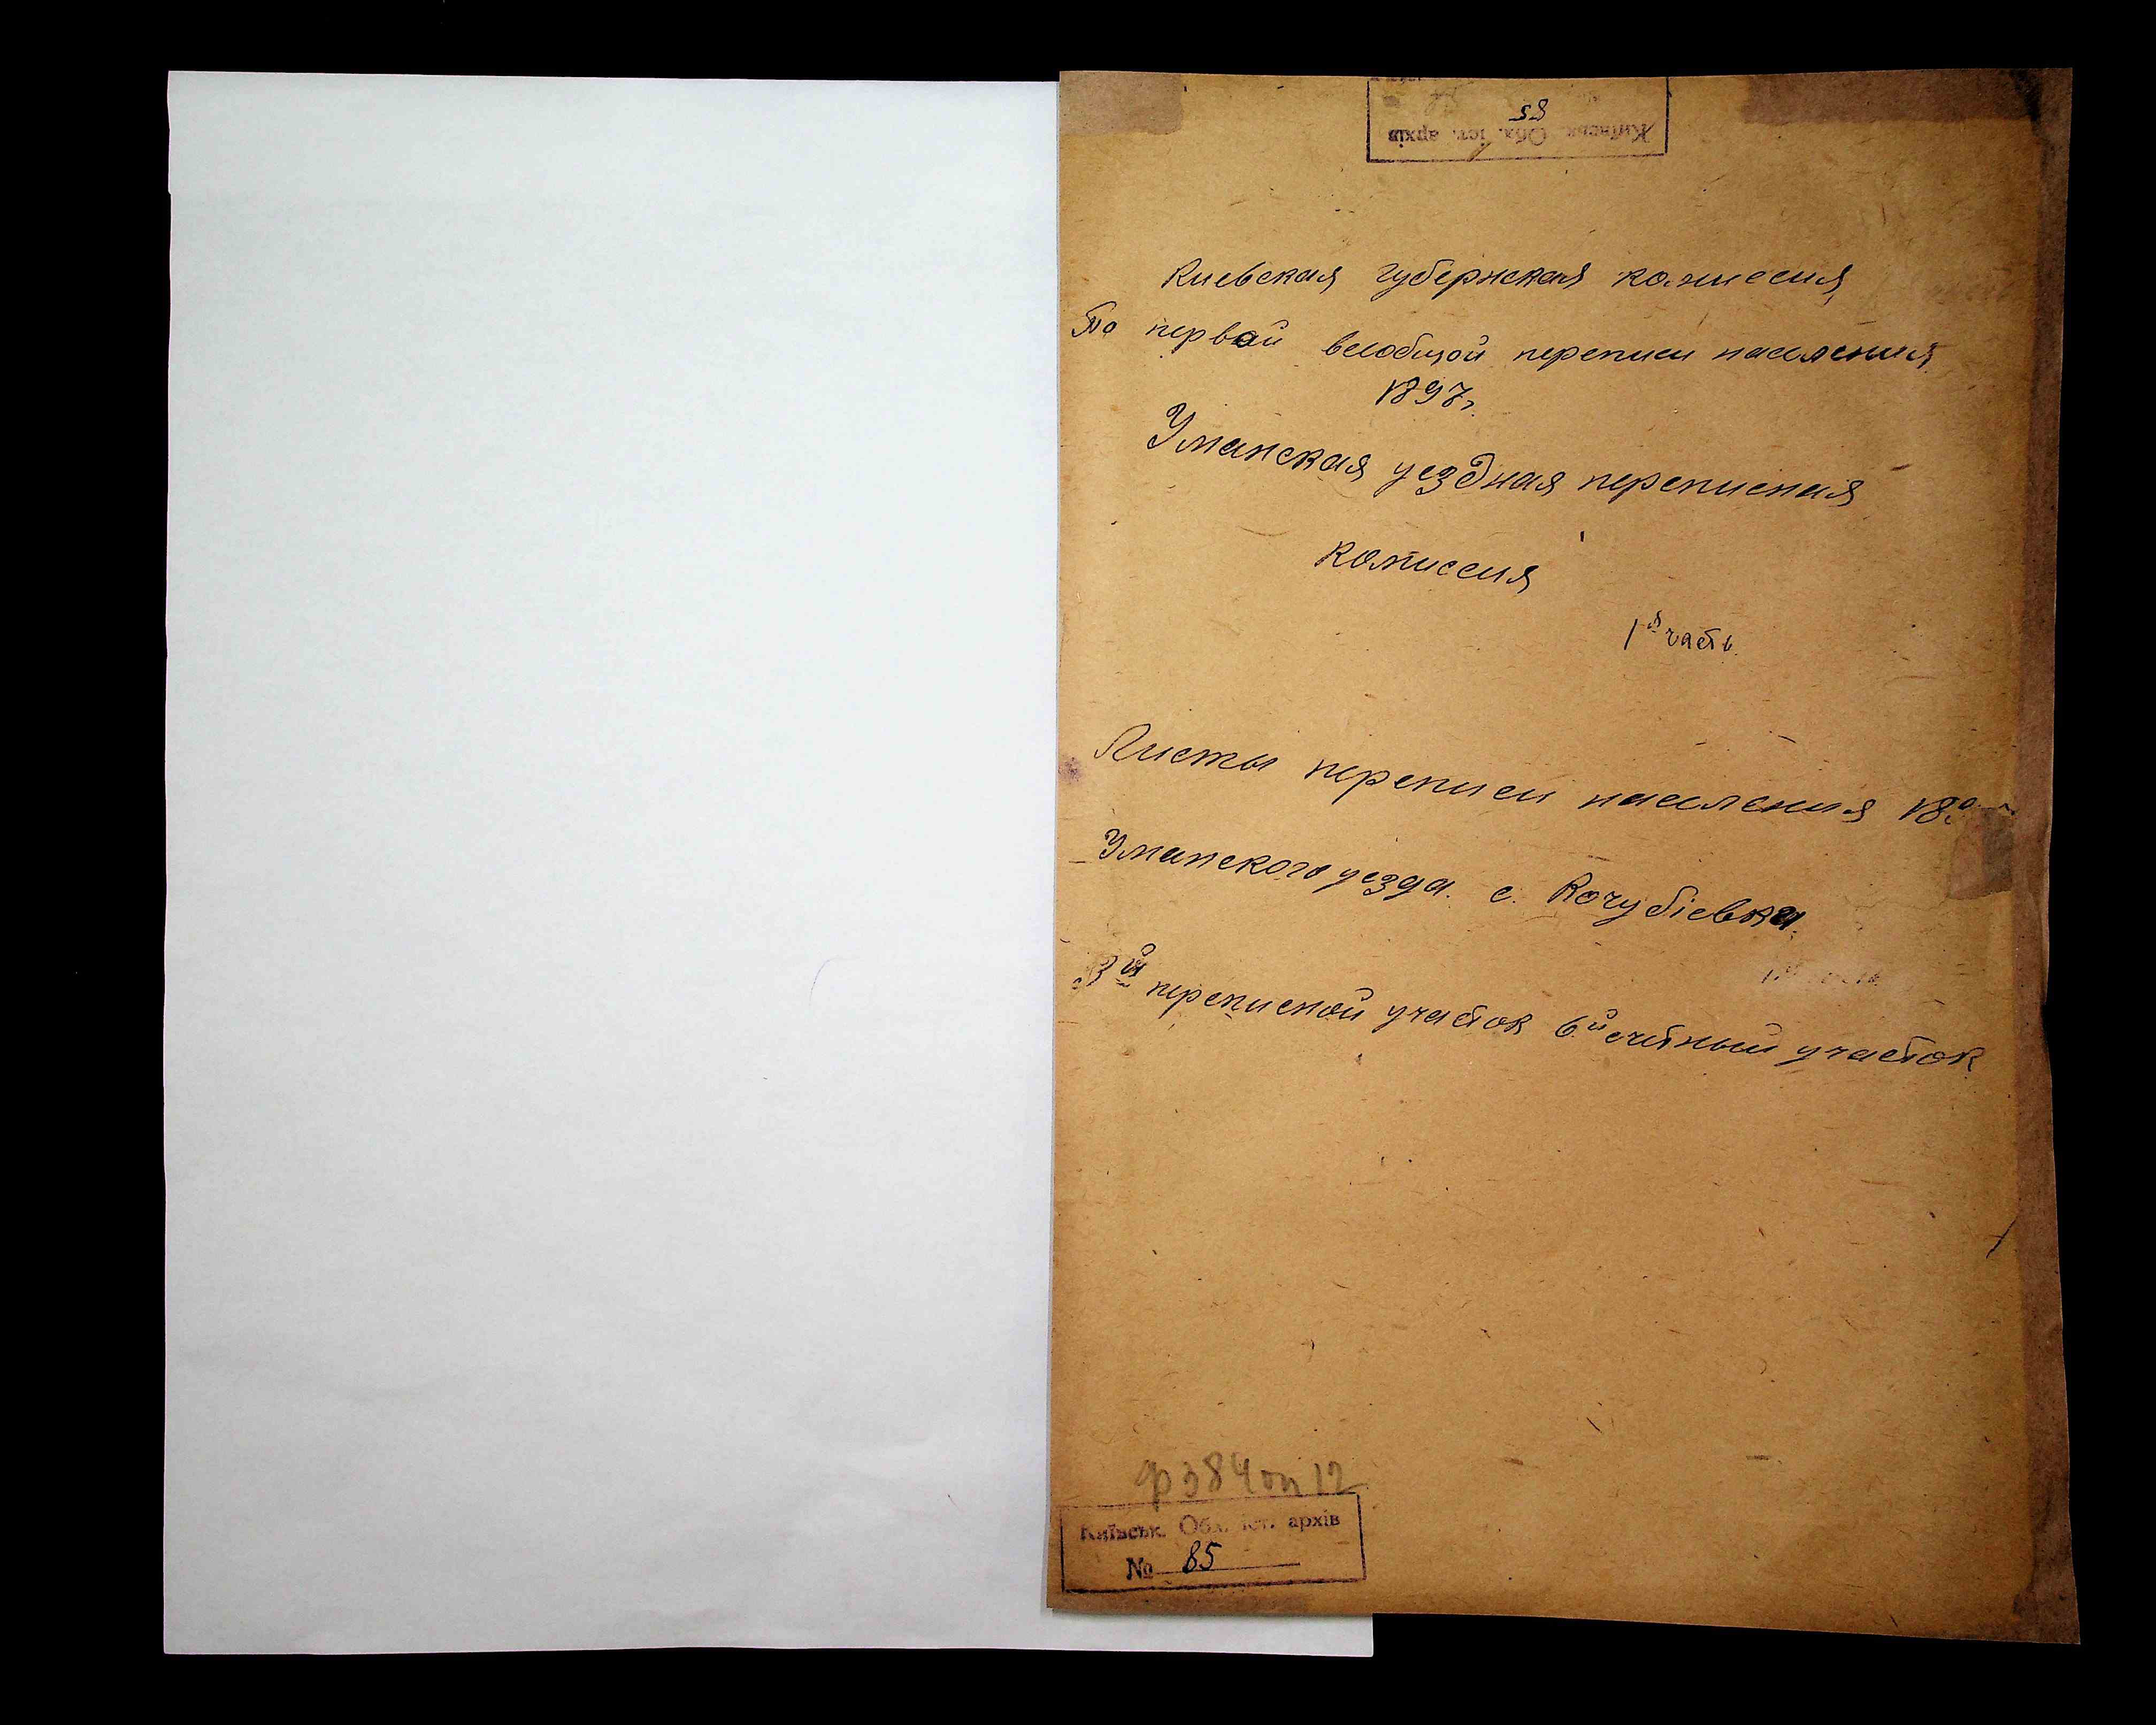 Київськ. Обл. іст. архів
85
Киевская губернская комиссия
По первой всеобщей переписи населения
1897г.
Уманская уездная переписная
комиссия
1я часть.
Листы переписи населения
Уманского уезда. с. Кочубіевка.
3й переписной участок 6й счетный участок
ф 384 оп 12
Київськ. Обл. іст. архів
№ 85